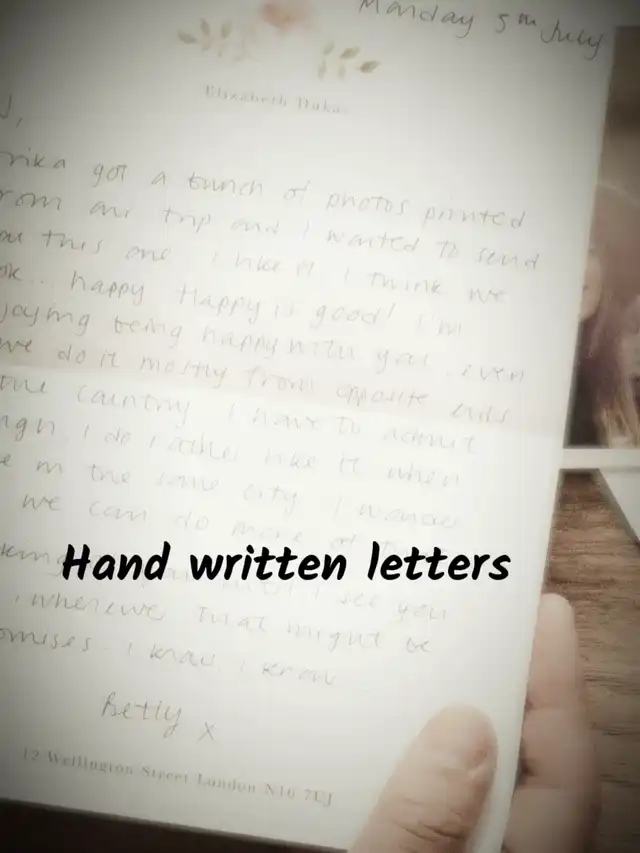 Monday 5th July
Elizabeth
rika got a bunch of photos printed
rom our trip and I wanted to send
ou this one. I like it. I think we
ok... happy. Happy is good! I'm
joying being happy with you, even
we do it mostly from opposite ends
the country. I have to admit
I do rather like it when
e in the same city. I wonder
we can do more of
king until I see you
Hand written letters
, wherever that might be
omises. I know, I know
Betty x
12 Wellington Street London N16 7UJ